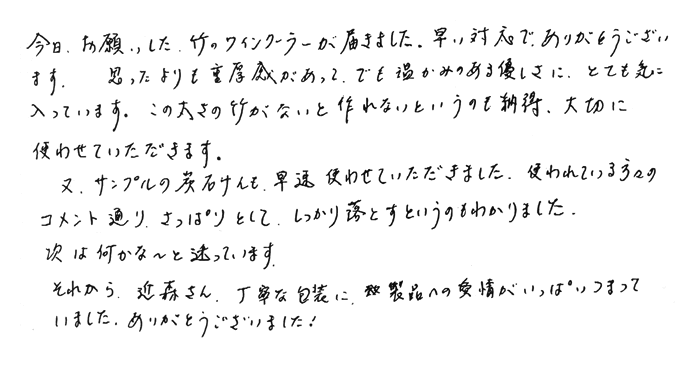 今日、お願いした、竹のワインクーラーが届きました。早い対応で、ありがとうござい
ます。 思ったよりも重厚感があって、でも温かみのある優しさに、とても気に
入っています。この太さの竹がないと作れないというのも納得、大切に
使わせていただきます。
又、サンプルの炭石けんも、早速使わせていただきました。使われている方々の
コメント通り、さっぱりとして、しっかり落とすというのもわかりました。
次は何かな〜と迷っています。
それから、近森さん、丁寧な包装に、製品への愛情がいっぱいつまって
いました。ありがとうございました!